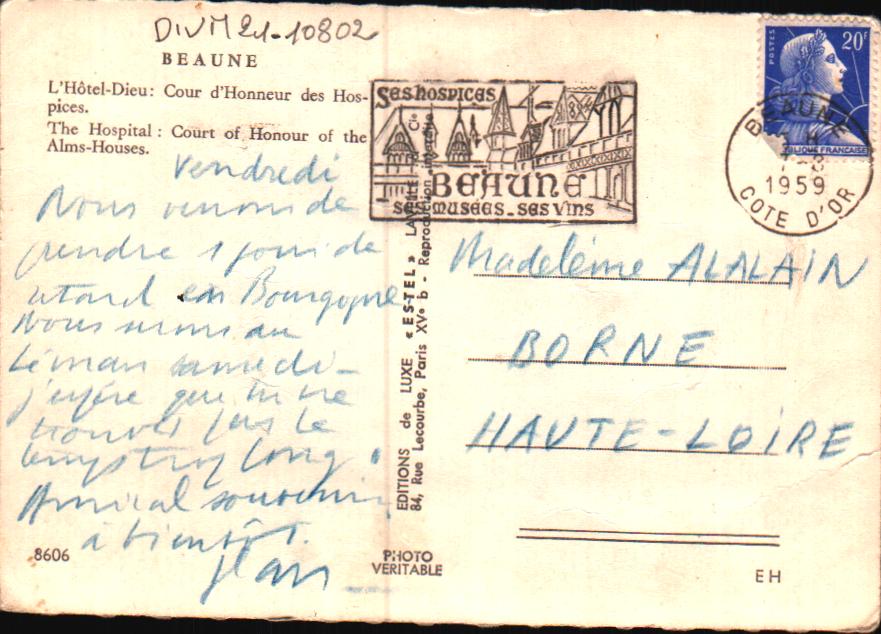 DIVM 21-10802
BEAUNE
L'Hôtel-Dieu: Cour d'Honneur des Hos-
pices.
The Hospital: Court of Honour of the
Alms-Houses.
Vendredi
Nous venons de
prendre 1 jour de
retard en Bourgogne
Nous serons au
Léman samedi -
j'espère que tu ne
trouves pas le
temps trop long.
Amical souvenir
à bientôt.
Jean
8606
EDITIONS de LUXE « ESTEL » LAVELLE & Cie
84, Rue Lecourbe, Paris XVe b - Reproduction interdite
PHOTO
VERITABLE
SES HOSPICES
BEAUNE
SES MUSÉES - SES VINS
POSTES
20F
REPUBLIQUE FRANCAISE
BEAUNE
1959
COTE D'OR
Madeleine ALALAIN
BORNE
HAUTE-LOIRE
EH